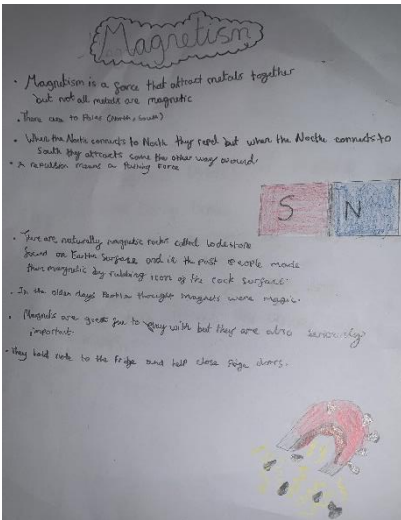 Magnetism
• Magnetism is a force that attract metals together
but not all metals are magnetic
• There are to Poles (North, South)
• When the North connects to North they repel but when the North connects to
South they attracts same the other way around.
• A repulsion means a Pushing Force
S N
• There are naturally magnetic rocks called lodestone
found on Earths surface and in the past People made
magnetic by rubbing of the rock surface.
• In the olden days thought magnets were magic.
• Magnets are great fun to play with but they are also
important
• They hold note to the Fridge and help close fridge doors.